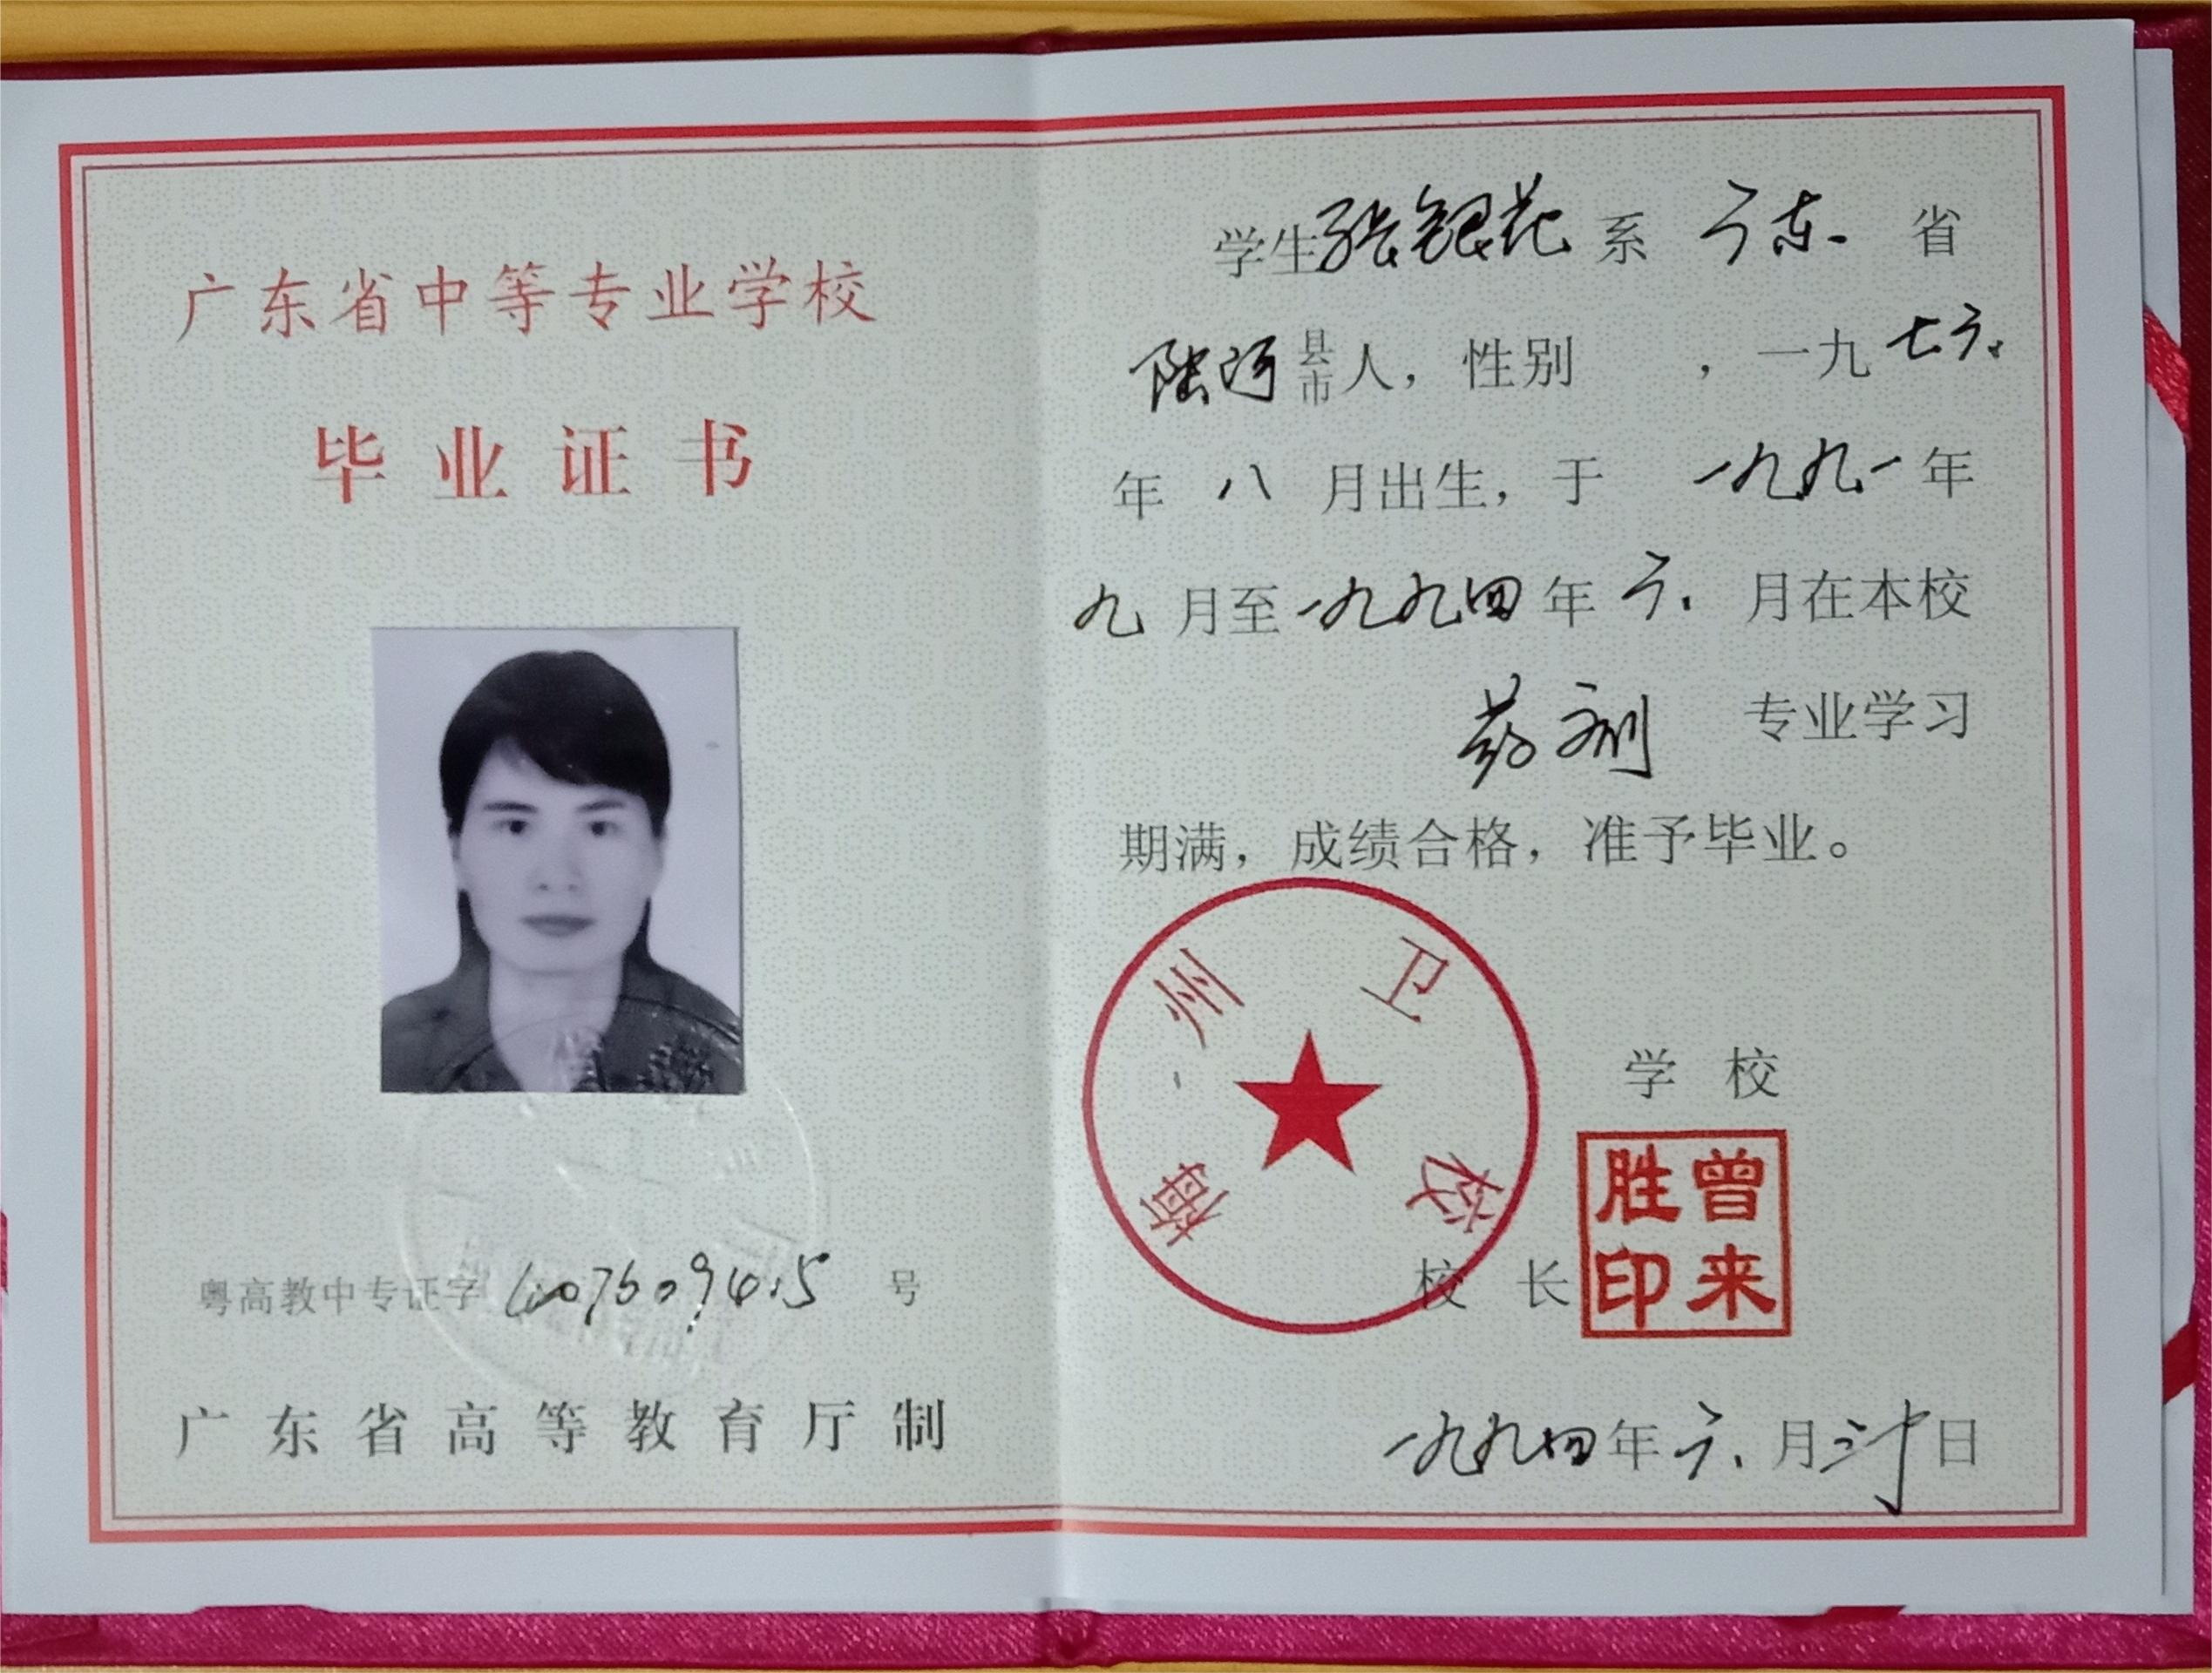 广东省中等专业学校
毕业证书
粤高教中专证字 号
广东省高等教育厅制
学生张银花系 广东 省
陆河县市人，性别 ，一九七六
年 八 月出生，于 一九九一年
九 月至一九九四年 六 月在本校
药剂 专业学习
期满，成绩合格，准予毕业。
梅州卫校
学校
校长
曾来胜印
一九九四年六月三十日